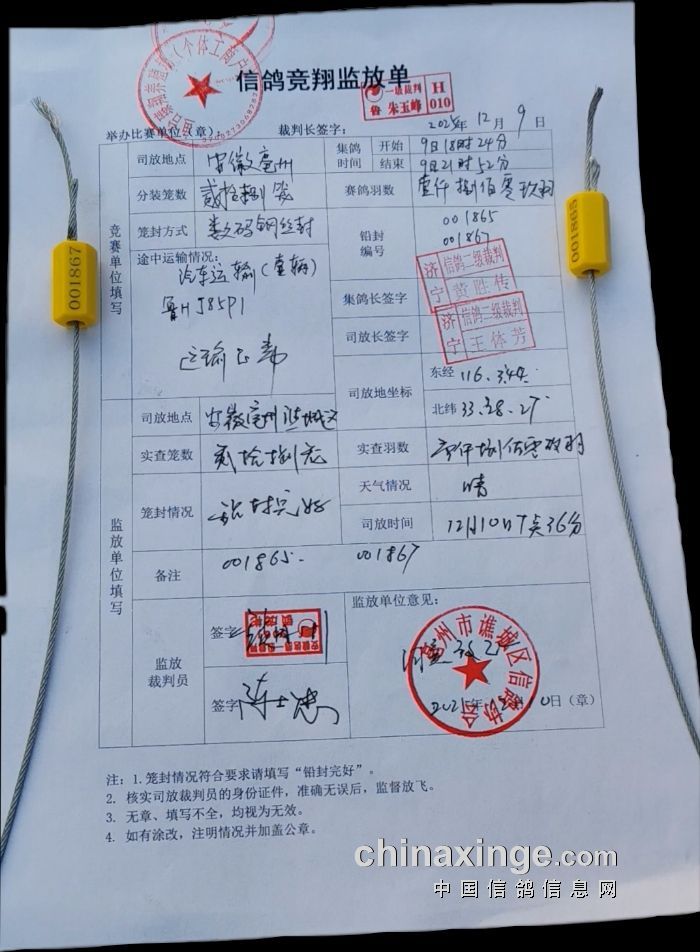 信鸽竞翔监放单
一级裁判 H
鲁 朱玉峰 010
举办比赛单位(章): 裁判长签字: 2025年12月9日
竞赛单位填写
司放地点 安徽亳州 集鸽时间 开始 9日18时24分
结束 9日21时52分
分装笼数 贰拾捌 赛鸽羽数 壹仟捌佰零玖羽
笼封方式 数码钢丝封 铅封编号 001865
001867
途中运输情况:
汽车运输(壹辆)
鲁HJ85P1
运输正常
集鸽长签字 济宁 信鸽二级裁判 黄胜传
司放长签字 济宁 信鸽二级裁判 王体芳
司放地坐标 东经 116.344.
北纬 33.38.27
监放单位填写
司放地点 安徽亳州谯城区
实查笼数 贰拾捌 实查羽数 壹仟捌佰零玖羽
笼封情况 铅封完好 天气情况 晴
司放时间 12月10日7点36分
备注 001865. 001867
监放裁判员 签字
签字
监放单位意见:
亳州市谯城区信鸽协会
2025年12月10日(章)
001867
001865
注:1.笼封情况符合要求请填写“铅封完好”。
2. 核实司放裁判员的身份证件,准确无误后,监督放飞。
3. 无章、填写不全,均视为无效。
4. 如有涂改,注明情况并加盖公章。
chinaxinge.com
中国信鸽信息网